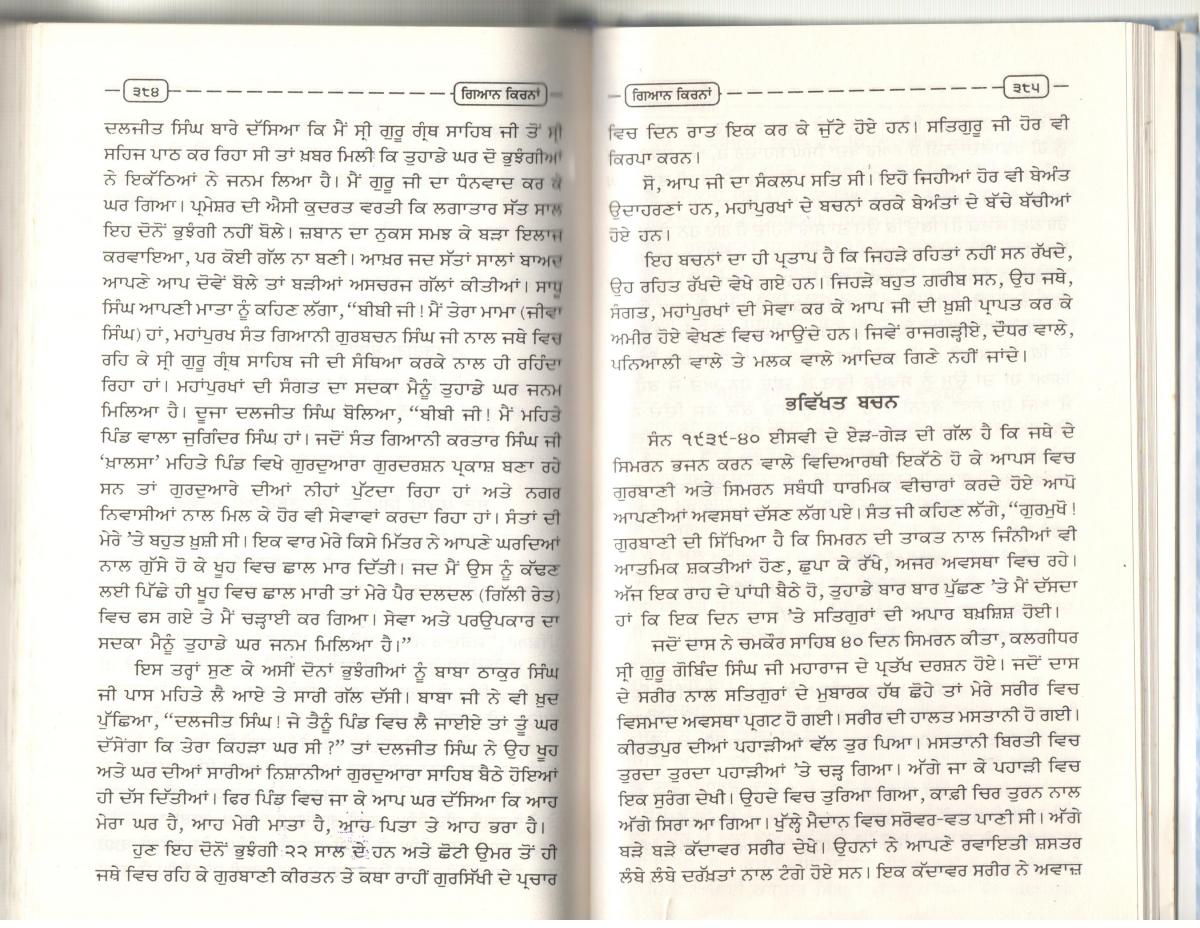 ੩੮੪
ਗਿਆਨ ਕਿਰਨਾਂ
ਦਲਜੀਤ ਸਿੰਘ ਬਾਰੇ ਦੱਸਿਆ ਕਿ ਮੈਂ ਸ੍ਰੀ ਗੁਰੂ ਗ੍ਰੰਥ ਸਾਹਿਬ ਜੀ ਤੋਂ ਸ੍ਰੀ
ਸਹਿਜ ਪਾਠ ਕਰ ਰਿਹਾ ਸੀ ਤਾਂ ਖ਼ਬਰ ਮਿਲੀ ਕਿ ਤੁਹਾਡੇ ਘਰ ਦੋ ਭੁਝੰਗੀਆਂ
ਨੇ ਇਕੱਠਿਆਂ ਨੇ ਜਨਮ ਲਿਆ ਹੈ। ਮੈਂ ਗੁਰੂ ਜੀ ਦਾ ਧੰਨਵਾਦ ਕਰ ਕੇ
ਘਰ ਗਿਆ। ਪ੍ਰਮੇਸ਼ਰ ਦੀ ਐਸੀ ਕੁਦਰਤ ਵਰਤੀ ਕਿ ਲਗਾਤਾਰ ਸੱਤ ਸਾਲ
ਇਹ ਦੋਨੋਂ ਭੁਝੰਗੀ ਨਹੀਂ ਬੋਲੇ। ਜ਼ਬਾਨ ਦਾ ਨੁਕਸ ਸਮਝ ਕੇ ਬੜਾ ਇਲਾਜ
ਕਰਵਾਇਆ, ਪਰ ਕੋਈ ਗੱਲ ਨਾ ਬਣੀ। ਆਖ਼ਰ ਜਦ ਸੱਤਾਂ ਸਾਲਾਂ ਬਾਅਦ
ਆਪਣੇ ਆਪ ਦੋਵੇਂ ਬੋਲੇ ਤਾਂ ਬੜੀਆਂ ਅਸਚਰਜ ਗੱਲਾਂ ਕੀਤੀਆਂ। ਸਾਧੂ
ਸਿੰਘ ਆਪਣੀ ਮਾਤਾ ਨੂੰ ਕਹਿਣ ਲੱਗਾ, “ਬੀਬੀ ਜੀ! ਮੈਂ ਤੇਰਾ ਮਾਮਾ (ਜੀਵਾ
ਸਿੰਘ) ਹਾਂ, ਮਹਾਂਪੁਰਖ ਸੰਤ ਗਿਆਨੀ ਗੁਰਬਚਨ ਸਿੰਘ ਜੀ ਨਾਲ ਜਥੇ ਵਿਚ
ਰਹਿ ਕੇ ਸ੍ਰੀ ਗੁਰੂ ਗ੍ਰੰਥ ਸਾਹਿਬ ਜੀ ਦੀ ਸੰਥਿਆ ਕਰਕੇ ਨਾਲ ਹੀ ਰਹਿੰਦਾ
ਰਿਹਾ ਹਾਂ। ਮਹਾਂਪੁਰਖਾਂ ਦੀ ਸੰਗਤ ਦਾ ਸਦਕਾ ਮੈਨੂੰ ਤੁਹਾਡੇ ਘਰ ਜਨਮ
ਮਿਲਿਆ ਹੈ। ਦੂਜਾ ਦਲਜੀਤ ਸਿੰਘ ਬੋਲਿਆ, “ਬੀਬੀ ਜੀ! ਮੈਂ ਮਹਿਤੇ
ਪਿੰਡ ਵਾਲਾ ਜੁਗਿੰਦਰ ਸਿੰਘ ਹਾਂ। ਜਦੋਂ ਸੰਤ ਗਿਆਨੀ ਕਰਤਾਰ ਸਿੰਘ ਜੀ
‘ਖ਼ਾਲਸਾ’ ਮਹਿਤੇ ਪਿੰਡ ਵਿਖੇ ਗੁਰਦੁਆਰਾ ਗੁਰਦਰਸ਼ਨ ਪ੍ਰਕਾਸ਼ ਬਣਾ ਰਹੇ
ਸਨ ਤਾਂ ਗੁਰਦੁਆਰੇ ਦੀਆਂ ਨੀਹਾਂ ਪੁੱਟਦਾ ਰਿਹਾ ਹਾਂ ਅਤੇ ਨਗਰ
ਨਿਵਾਸੀਆਂ ਨਾਲ ਮਿਲ ਕੇ ਹੋਰ ਵੀ ਸੇਵਾਵਾਂ ਕਰਦਾ ਰਿਹਾ ਹਾਂ। ਸੰਤਾਂ ਦੀ
ਮੇਰੇ ’ਤੇ ਬਹੁਤ ਖ਼ੁਸ਼ੀ ਸੀ। ਇਕ ਵਾਰ ਮੇਰੇ ਕਿਸੇ ਮਿੱਤਰ ਨੇ ਆਪਣੇ ਘਰਦਿਆਂ
ਨਾਲ ਗੁੱਸੇ ਹੋ ਕੇ ਖੂਹ ਵਿਚ ਛਾਲ ਮਾਰ ਦਿੱਤੀ। ਜਦ ਮੈਂ ਉਸ ਨੂੰ ਕੱਢਣ
ਲਈ ਪਿੱਛੇ ਹੀ ਖੂਹ ਵਿਚ ਛਾਲ ਮਾਰੀ ਤਾਂ ਮੇਰੇ ਪੈਰ ਦਲਦਲ (ਗਿੱਲੀ ਰੇਤ)
ਵਿਚ ਫਸ ਗਏ ਤੇ ਮੈਂ ਚੜ੍ਹਾਈ ਕਰ ਗਿਆ। ਸੇਵਾ ਅਤੇ ਪਰਉਪਕਾਰ ਦਾ
ਸਦਕਾ ਮੈਨੂੰ ਤੁਹਾਡੇ ਘਰ ਜਨਮ ਮਿਲਿਆ ਹੈ।”
ਇਸ ਤਰ੍ਹਾਂ ਸੁਣ ਕੇ ਅਸੀਂ ਦੋਨਾਂ ਭੁਝੰਗੀਆਂ ਨੂੰ ਬਾਬਾ ਠਾਕੁਰ ਸਿੰਘ
ਜੀ ਪਾਸ ਮਹਿਤੇ ਲੈ ਆਏ ਤੇ ਸਾਰੀ ਗੱਲ ਦੱਸੀ। ਬਾਬਾ ਜੀ ਨੇ ਵੀ ਖ਼ੁਦ
ਪੁੱਛਿਆ, “ਦਲਜੀਤ ਸਿੰਘ! ਜੇ ਤੈਨੂੰ ਪਿੰਡ ਵਿਚ ਲੈ ਜਾਈਏ ਤਾਂ ਤੂੰ ਘਰ
ਦੱਸੇਂਗਾ ਕਿ ਤੇਰਾ ਕਿਹੜਾ ਘਰ ਸੀ?” ਤਾਂ ਦਲਜੀਤ ਸਿੰਘ ਨੇ ਉਹ ਖੂਹ
ਅਤੇ ਘਰ ਦੀਆਂ ਸਾਰੀਆਂ ਨਿਸ਼ਾਨੀਆਂ ਗੁਰਦੁਆਰਾ ਸਾਹਿਬ ਬੈਠੇ ਹੋਇਆਂ
ਹੀ ਦੱਸ ਦਿੱਤੀਆਂ। ਫਿਰ ਪਿੰਡ ਵਿਚ ਜਾ ਕੇ ਆਪ ਘਰ ਦੱਸਿਆ ਕਿ ਆਹ
ਮੇਰਾ ਘਰ ਹੈ, ਆਹ ਮੇਰੀ ਮਾਤਾ ਹੈ, ਆਹ ਪਿਤਾ ਤੇ ਆਹ ਭਰਾ ਹੈ।
ਹੁਣ ਇਹ ਦੋਨੋਂ ਭੁਝੰਗੀ ੨੨ ਸਾਲ ਦੇ ਹਨ ਅਤੇ ਛੋਟੀ ਉਮਰ ਤੋਂ ਹੀ
ਜਥੇ ਵਿਚ ਰਹਿ ਕੇ ਗੁਰਬਾਣੀ ਕੀਰਤਨ ਤੇ ਕਥਾ ਰਾਹੀਂ ਗੁਰਸਿੱਖੀ ਦੇ ਪ੍ਰਚਾਰ
ਗਿਆਨ ਕਿਰਨਾਂ
੩੮੫
ਵਿਚ ਦਿਨ ਰਾਤ ਇਕ ਕਰ ਕੇ ਜੁੱਟੇ ਹੋਏ ਹਨ। ਸਤਿਗੁਰੂ ਜੀ ਹੋਰ ਵੀ
ਕਿਰਪਾ ਕਰਨ।
ਸੋ, ਆਪ ਜੀ ਦਾ ਸੰਕਲਪ ਸਤਿ ਸੀ। ਇਹੋ ਜਿਹੀਆਂ ਹੋਰ ਵੀ ਬੇਅੰਤ
ਉਦਾਹਰਣਾਂ ਹਨ, ਮਹਾਂਪੁਰਖਾਂ ਦੇ ਬਚਨਾਂ ਕਰਕੇ ਬੇਅੰਤਾਂ ਦੇ ਬੱਚੇ ਬੱਚੀਆਂ
ਹੋਏ ਹਨ।
ਇਹ ਬਚਨਾਂ ਦਾ ਹੀ ਪ੍ਰਤਾਪ ਹੈ ਕਿ ਜਿਹੜੇ ਰਹਿਤਾਂ ਨਹੀਂ ਸਨ ਰੱਖਦੇ,
ਉਹ ਰਹਿਤ ਰੱਖਦੇ ਵੇਖੇ ਗਏ ਹਨ। ਜਿਹੜੇ ਬਹੁਤ ਗ਼ਰੀਬ ਸਨ, ਉਹ ਜਥੇ,
ਸੰਗਤ, ਮਹਾਂਪੁਰਖਾਂ ਦੀ ਸੇਵਾ ਕਰ ਕੇ ਆਪ ਜੀ ਦੀ ਖ਼ੁਸ਼ੀ ਪ੍ਰਾਪਤ ਕਰ ਕੇ
ਅਮੀਰ ਹੋਏ ਵੇਖਣ ਵਿਚ ਆਉਂਦੇ ਹਨ। ਜਿਵੇਂ ਰਾਜਗੜੀਏ, ਦੌਧਰ ਵਾਲੇ,
ਪਨਿਆਲੀ ਵਾਲੇ ਤੇ ਮਲਕ ਵਾਲੇ ਆਦਿਕ ਗਿਣੇ ਨਹੀਂ ਜਾਂਦੇ।
ਭਵਿੱਖਤ ਬਚਨ
ਸੰਨ ੧੯੩੯-੪੦ ਈਸਵੀ ਦੇ ਏੜ-ਗੇੜ ਦੀ ਗੱਲ ਹੈ ਕਿ ਜਥੇ ਦੇ
ਸਿਮਰਨ ਭਜਨ ਕਰਨ ਵਾਲੇ ਵਿਦਿਆਰਥੀ ਇਕੱਠੇ ਹੋ ਕੇ ਆਪਸ ਵਿਚ
ਗੁਰਬਾਣੀ ਅਤੇ ਸਿਮਰਨ ਸਬੰਧੀ ਧਾਰਮਿਕ ਵੀਚਾਰਾਂ ਕਰਦੇ ਹੋਏ ਆਪੋ
ਆਪਣੀਆਂ ਅਵਸਥਾਂ ਦੱਸਣ ਲੱਗ ਪਏ। ਸੰਤ ਜੀ ਕਹਿਣ ਲੱਗੇ, “ਗੁਰਮੁਖੋ!
ਗੁਰਬਾਣੀ ਦੀ ਸਿੱਖਿਆ ਹੈ ਕਿ ਸਿਮਰਨ ਦੀ ਤਾਕਤ ਨਾਲ ਜਿੰਨੀਆਂ ਵੀ
ਆਤਮਿਕ ਸ਼ਕਤੀਆਂ ਹੋਣ, ਛੁਪਾ ਕੇ ਰੱਖੇ, ਅਜਰ ਅਵਸਥਾ ਵਿਚ ਰਹੇ।
ਅੱਜ ਇਕ ਰਾਹ ਦੇ ਪਾਂਧੀ ਬੈਠੇ ਹੋ, ਤੁਹਾਡੇ ਬਾਰ ਬਾਰ ਪੁੱਛਣ ’ਤੇ ਮੈਂ ਦੱਸਦਾ
ਹਾਂ ਕਿ ਇਕ ਦਿਨ ਦਾਸ ’ਤੇ ਸਤਿਗੁਰਾਂ ਦੀ ਅਪਾਰ ਬਖ਼ਸ਼ਿਸ਼ ਹੋਈ।
ਜਦੋਂ ਦਾਸ ਨੇ ਚਮਕੌਰ ਸਾਹਿਬ ੪੦ ਦਿਨ ਸਿਮਰਨ ਕੀਤਾ, ਕਲਗੀਧਰ
ਸ੍ਰੀ ਗੁਰੂ ਗੋਬਿੰਦ ਸਿੰਘ ਜੀ ਮਹਾਰਾਜ ਦੇ ਪ੍ਰਤੱਖ ਦਰਸ਼ਨ ਹੋਏ। ਜਦੋਂ ਦਾਸ
ਦੇ ਸਰੀਰ ਨਾਲ ਸਤਿਗੁਰਾਂ ਦੇ ਮੁਬਾਰਕ ਹੱਥ ਛੋਹੇ ਤਾਂ ਮੇਰੇ ਸਰੀਰ ਵਿਚ
ਵਿਸਮਾਦ ਅਵਸਥਾ ਪ੍ਰਗਟ ਹੋ ਗਈ। ਸਰੀਰ ਦੀ ਹਾਲਤ ਮਸਤਾਨੀ ਹੋ ਗਈ।
ਕੀਰਤਪੁਰ ਦੀਆਂ ਪਹਾੜੀਆਂ ਵੱਲ ਤੁਰ ਪਿਆ। ਮਸਤਾਨੀ ਬਿਰਤੀ ਵਿਚ
ਤੁਰਦਾ ਤੁਰਦਾ ਪਹਾੜੀਆਂ ’ਤੇ ਚੜ੍ਹ ਗਿਆ। ਅੱਗੇ ਜਾ ਕੇ ਪਹਾੜੀ ਵਿਚ
ਇਕ ਸੁਰੰਗ ਦੇਖੀ। ਉਹਦੇ ਵਿਚ ਤੁਰਿਆ ਗਿਆ, ਕਾਫ਼ੀ ਚਿਰ ਤੁਰਨ ਨਾਲ
ਅੱਗੇ ਸਿਰਾ ਆ ਗਿਆ। ਖੁੱਲ੍ਹੇ ਮੈਦਾਨ ਵਿਚ ਸਰੋਵਰ-ਵਤ ਪਾਣੀ ਸੀ। ਅੱਗੇ
ਬੜੇ ਬੜੇ ਕੱਦਾਵਰ ਸਰੀਰ ਦੇਖੇ। ਉਹਨਾਂ ਨੇ ਆਪਣੇ ਰਵਾਇਤੀ ਸ਼ਸਤਰ
ਲੰਬੇ ਲੰਬੇ ਦਰੱਖ਼ਤਾਂ ਨਾਲ ਟੰਗੇ ਹੋਏ ਸਨ। ਇਕ ਕੱਦਾਵਰ ਸਰੀਰ ਨੇ ਅਵਾਜ਼